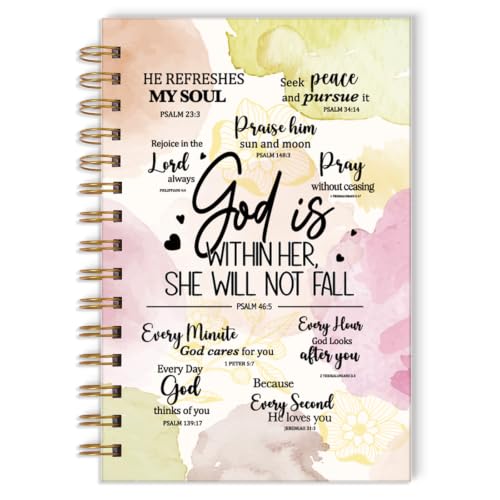 HE REFRESHES
MY SOUL
PSALM 23:3
Seek peace
and pursue it
PSALM 34:14
Praise him
sun and moon
PSALM 148:3
Rejoice in the
Lord
always
PHILIPPIANS 4:4
Pray
without ceasing
1 THESSALONIANS 5:17
God is
WITHIN HER,
SHE WILL NOT FALL
PSALM 46:5
Every Minute
God cares for you
1 PETER 5:7
Every Hour
God Looks
after you
2 THESSALONIANS 3:3
Every Day
God
thinks of you
PSALM 139:17
Because
Every Second
He loves you
JEREMIAH 31:3